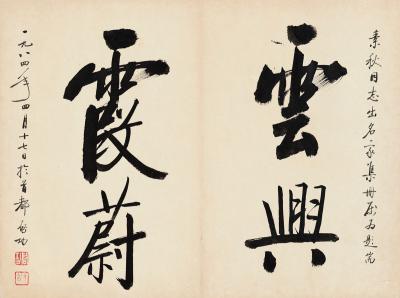 素秋同志出名家集册属为题耑
雲興
霞蔚
一九八四年四月十七日於首都啟功